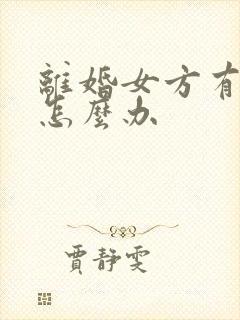 離婚女方有
怎麼办
賈靜雯